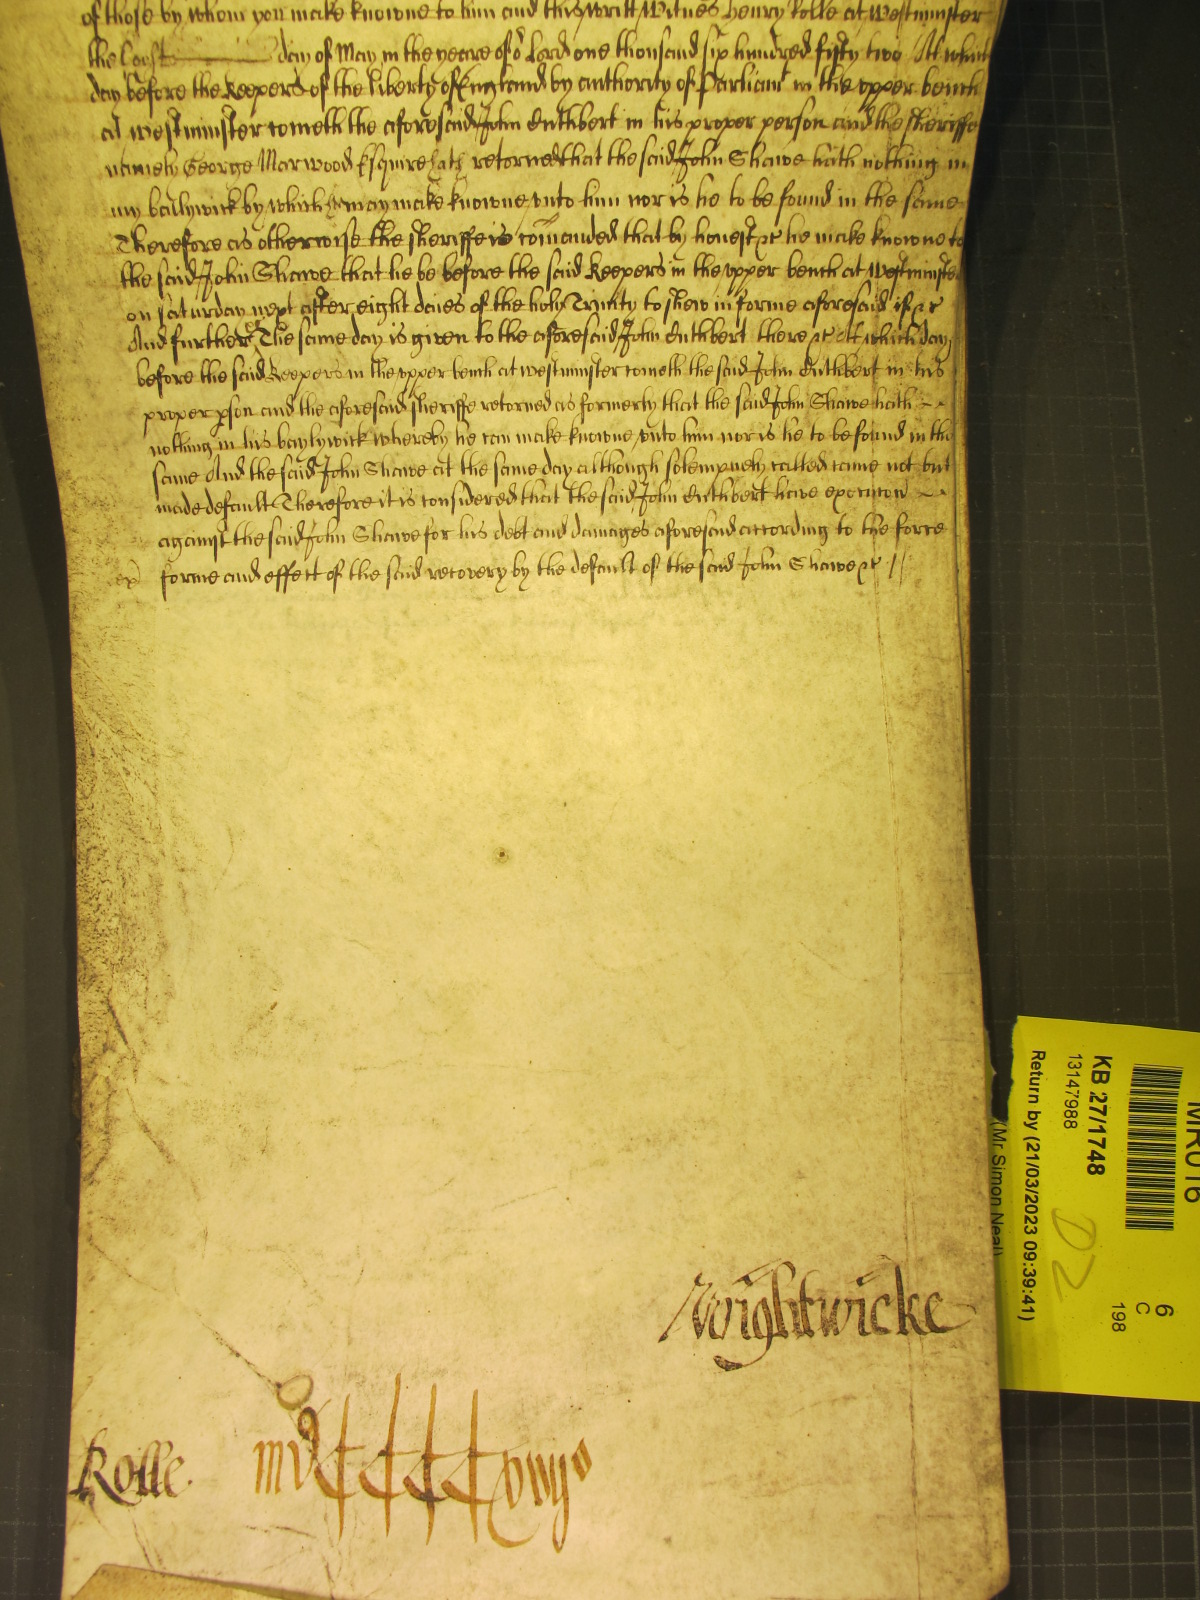 of those by whom you make knowne to him and this writt Witnes Henry Rolle at Westminster
the last day of May in the yeare of oʳ Lord one thousand six hundred fifty two At which
day before the Keepers of the liberty of England by authority of Parliamt in the upper bench
at Westminster cometh the aforesaid John Cuthbert in his proper person and the sheriffe
namely George Marwood Esquire hath retorned that the said John Shawe hath nothing in
my baylywick by which may make knowne unto him nor is he to be found in the same
Therefore as otherwise the sheriffe is comanded that by honest &c he make knowne to
the said John Shawe that he be before the said Keepers in the upper bench at Westminster
on saturday next after eight daies of the holy Trinity to shew in forme aforesaid if &c
And further &c The same day is given to the aforesaid John Cuthbert there &c At which day
before the said Keepers in the upper bench at Westminster cometh the said John Cuthbert in his
proper pson and the aforesaid sheriffe retorned as formerly that the said John Shawe hath
nothing in his baylywick whereby he can make knowne unto him nor is he to be found in the
same And the said John Shawe at the same day although solempnely called came not but
made default Therefore it is considered that the said John Cuthbert have execucon
against the said John Shawe for his debt and damages aforesaid according to the force
forme and effect of the said recovery by the default of the said John Shawe &c
Wightwicke
Rolle
MR016
6
C
198
KB 27/1748
13147988
D2
Return by (21/03/2023 09:39:41)
(Mr Simon Neal)